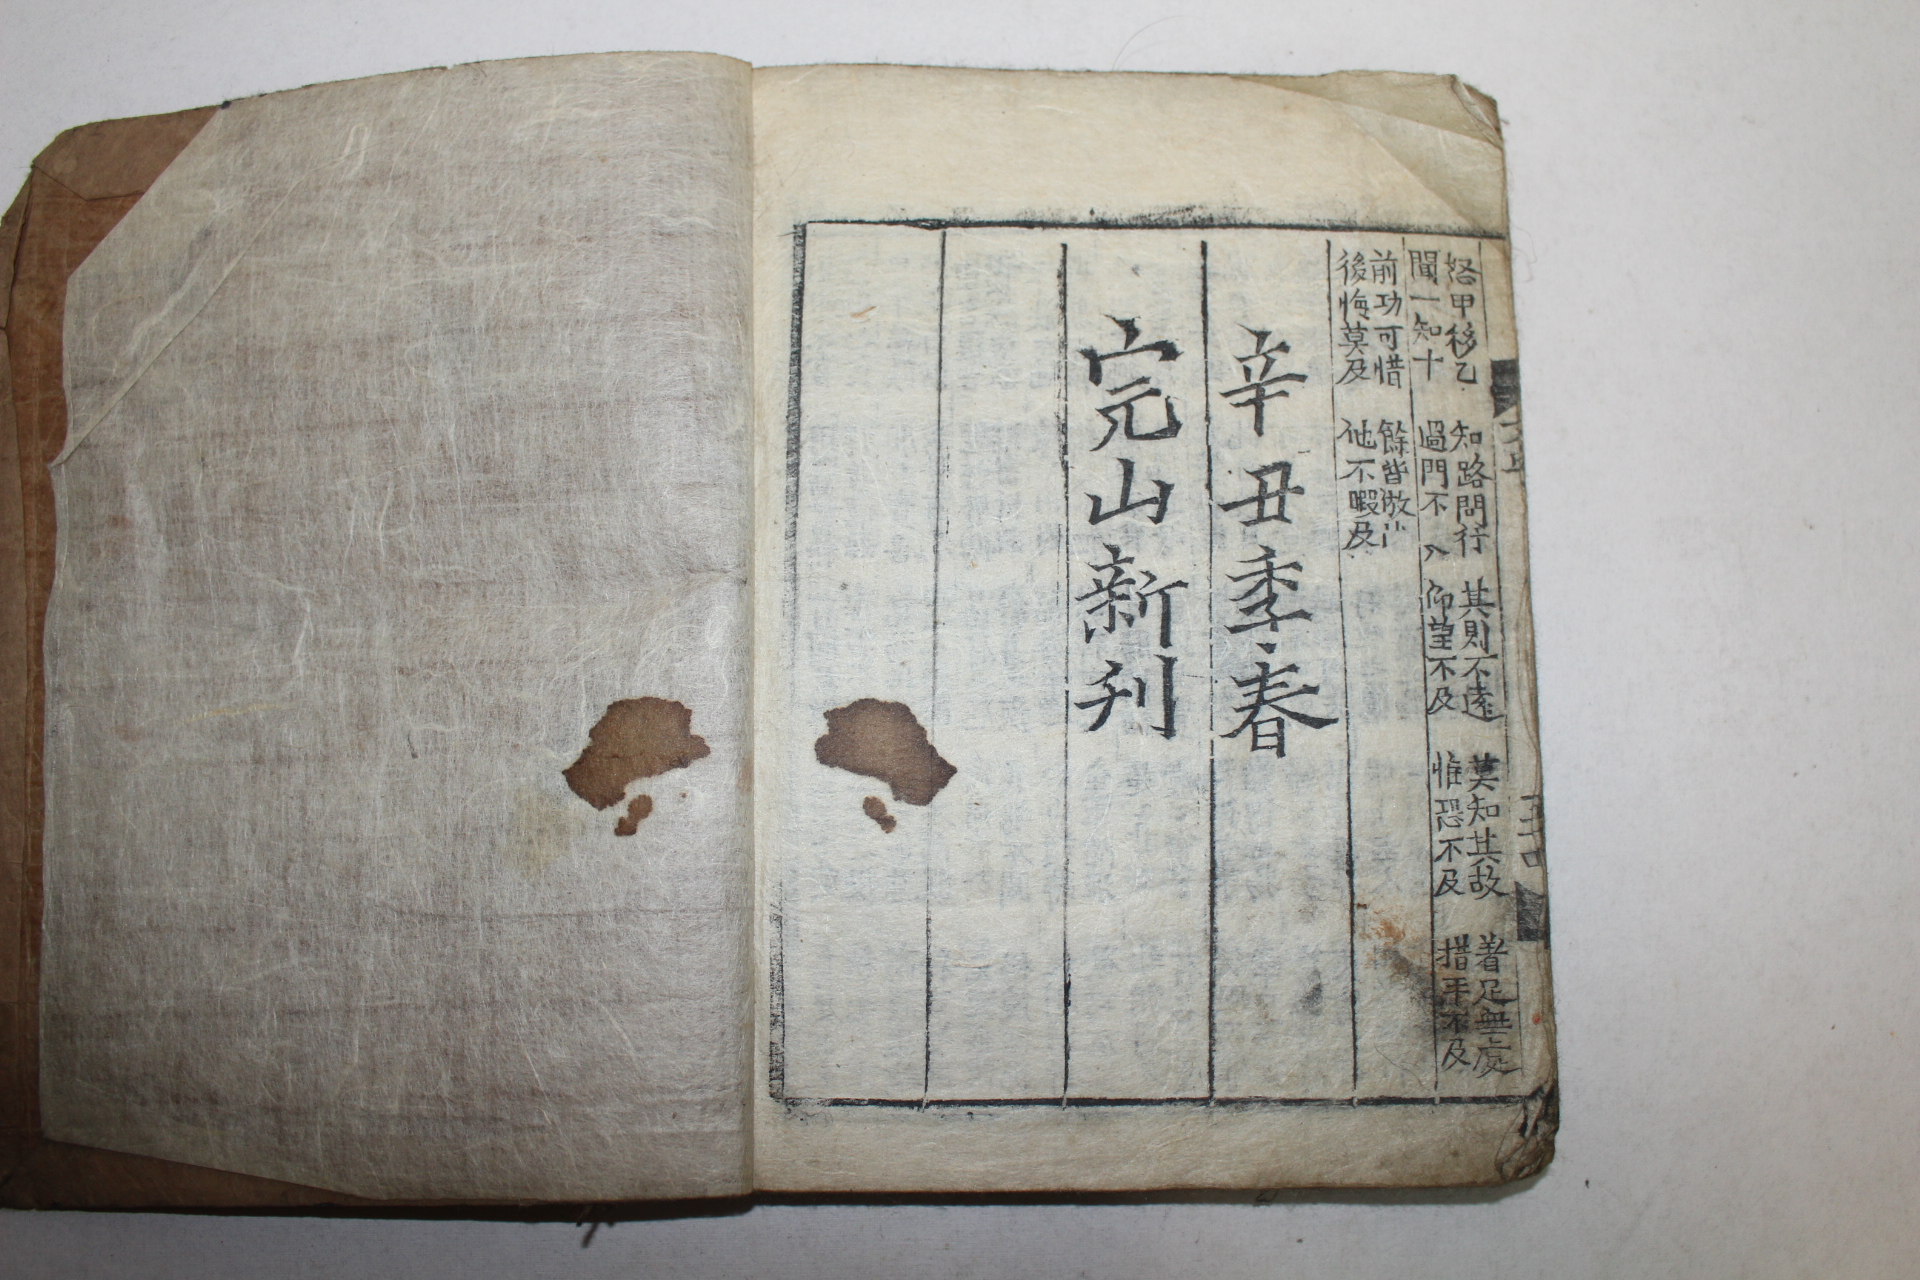 怒甲移乙　知路問行　其則不遠　莫知其故　着足無處
聞一知十　過門不入　仰望不及　惟恐不及　措手不及
前功可惜　餘皆倣
後悔莫及　他不暇及
辛丑季春
完山新刋